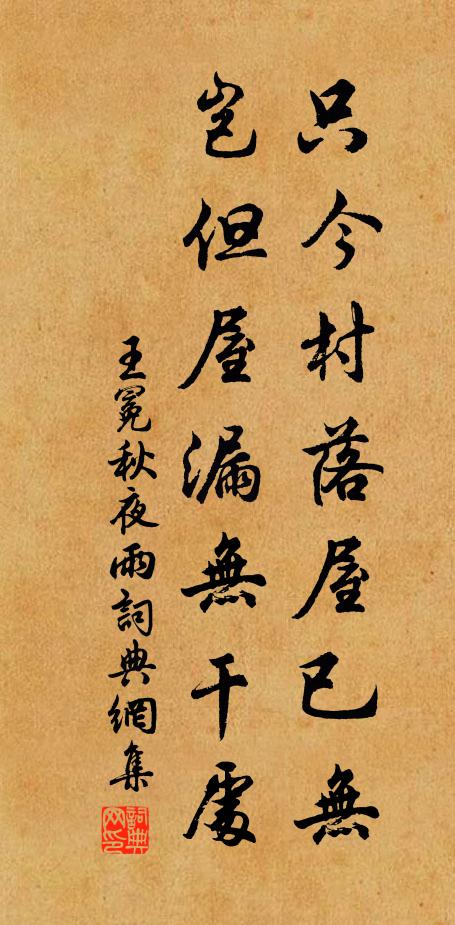 只今村落屋已無
豈但屋漏無干處
王冕秋夜雨詞典網集
詞典网印